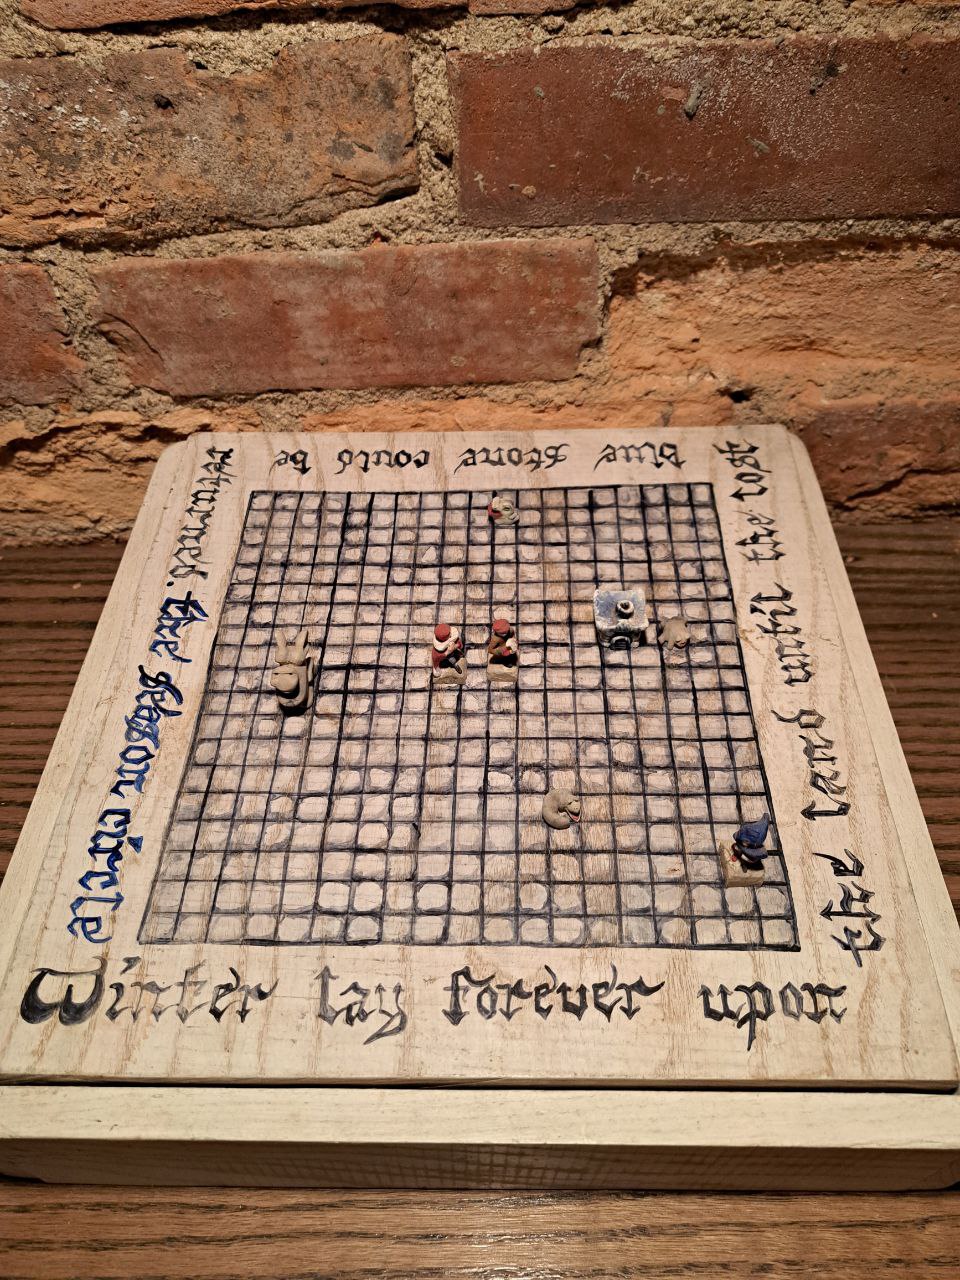 Winter lay forever upon
the land until the lost
blue stone could be
returned. the season circle